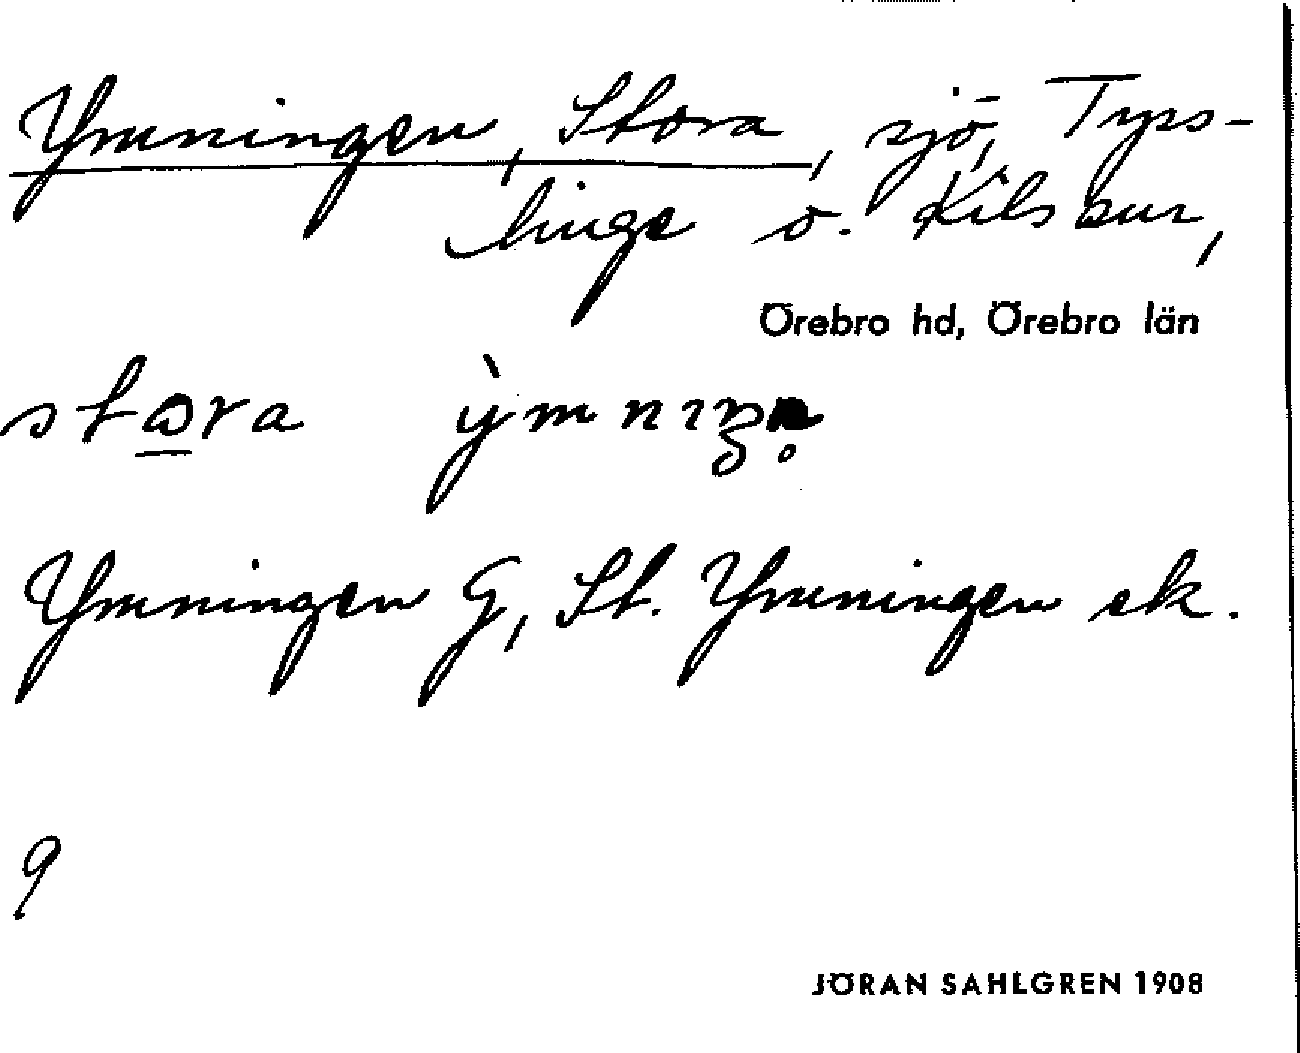 Ymningen, Stora, sjö, Tyss-
linge o. Kils snr,
Örebro hd, Örebro län
stora ỳmnıŋn̥
Ymningen G, St. Ymningen ek.
9
JÖRAN SAHLGREN 1908